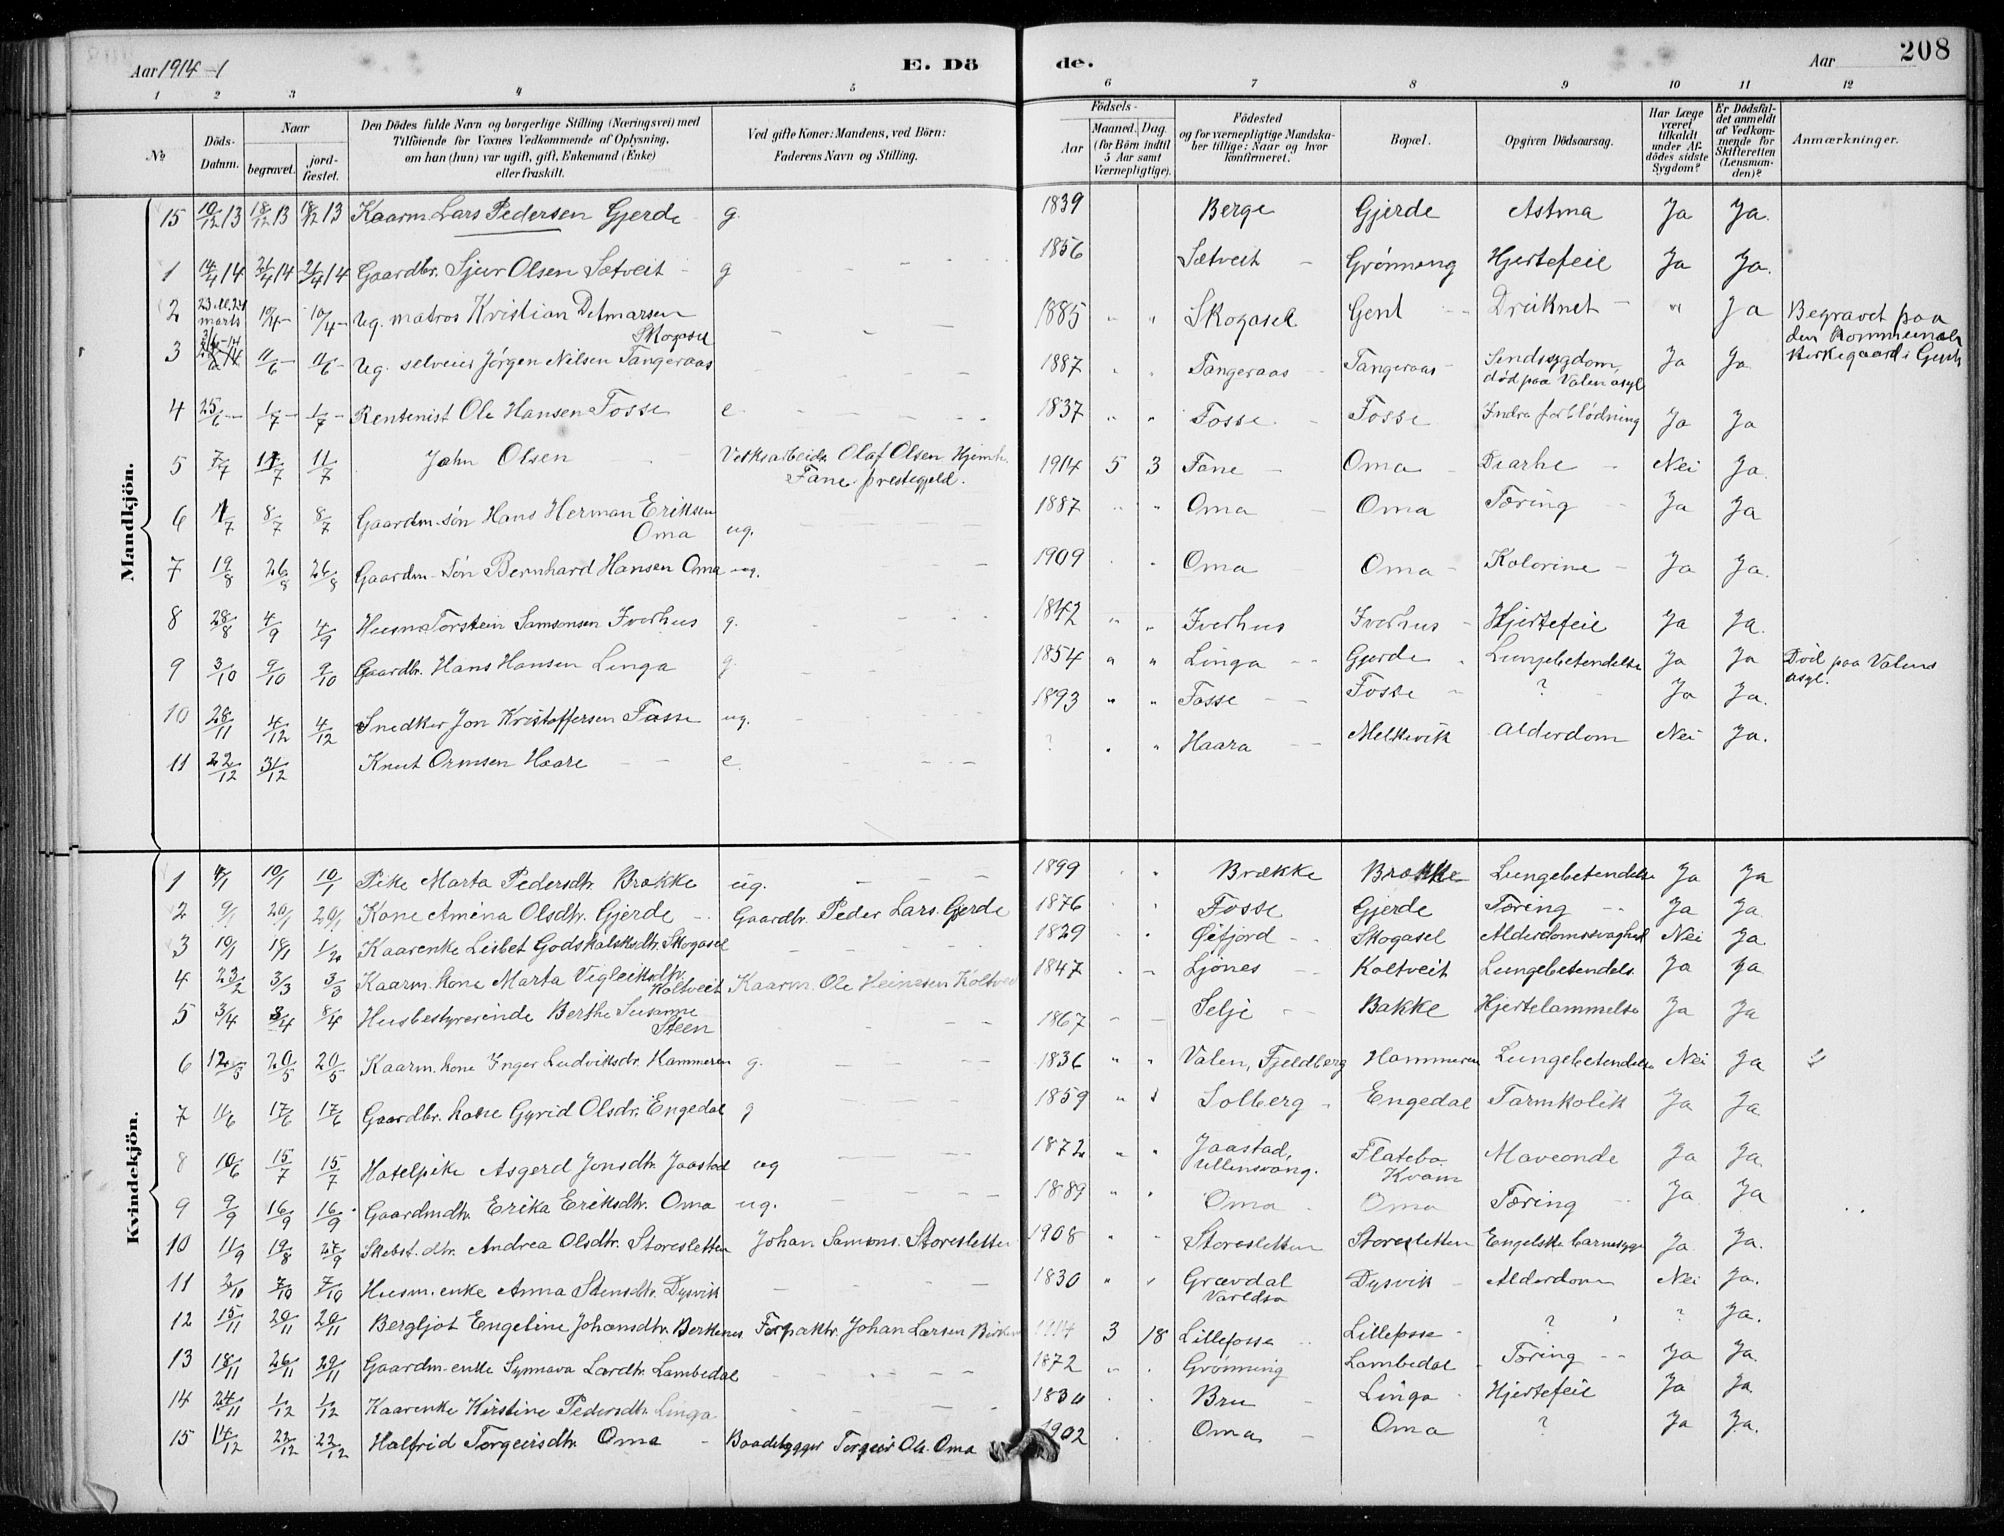 Aar 1914
E. Dö de.
Aar
208
1 2 3 4 5 6 7 8 9 10 11 12
No
Döds-Datum.
Naar
begravet.
jord-fæstet.
Den Dödes fulde Navn og borgerlige Stilling (Næringsvei) med
Tilföiende for Voxnes Vedkommende af Oplysning,
om han (hun) var ugift, gift, Enkemand (Enke)
eller fraskilt.
Ved gifte Koner: Mandens, ved Börn:
Faderens Navn og Stilling.
Födsels-
Aar
Maaned. Dag.
(for Börn indtil
5 Aar samt
Værnepligtige).
Födested
og for værnepligtige Mandska-
ber tillige: Naar og hvor
konfirmeret.
Bopæl.
Opgiven Dödsaarsag.
Har Læge
været
tilkaldt
under Af-
dödes sidste
Sygdom?
Er Dödsfal-
det anmeldt
af Vedkom-
mende for
Skifteretten
(Lensman-
den)?
Anmærkninger.
Mandkjön.
15 10/12 13 18/12 13 18/12 13 Kaarm. Lars Pedersen Gjerde g. 1839 Berge Gjerde Astma Ja Ja.
1 14/4 14 21/4 14 21/4 14 Gaardbr. Sjur Olsen Sætveit g 1856 Sætveit Grönnong Hjertefeil Ja Ja.
2 marts 10/4 10/4 Ug. matros Kristian Detmarsen Skogasel 1885 " " Skogasel Gent Druknet " Ja Begravet paa den Kommunale Kirkegaard i Gent
3 11/6 11/6 Ug. selveier Jörgen Nilsen Tangeraas 1887 Tangeraas Tangeraas Sindssygdom, död paa Valen asyl Ja Ja
4 25/6 1/7 1/7 Rentenist Ole Hansen Fosse e. 1837 " " Fosse Fosse Indre forblödning Ja Ja
5 7/7 11/7 11/7 John Olsen Verksarbeider Olaf Olsen Fane prestegjeld. 1914 5 3 Fane Oma Diarhe Nei Ja.
6 8/7 8/7 Gaardm. sön Hans Herman Eriksen Oma ug. 1887 Oma Oma Tæring Ja Ja
7 19/8 26/8 26/8 Gaardm. Sön Bernhard Hansen Oma ug. 1909 Oma Oma Kolorine Ja Ja.
8 28/8 4/9 4/9 Husm. Torstein Samsonsen Iverhus g. 1842 " " Iverhus Iverhus Hjertefeil Ja Ja.
9 3/10 9/10 9/10 Gaardbr. Hans Hansen Linga g. 1854 " " Linga Gjerde Lungebetendelse Ja Ja Död paa Valens asyl.
10 28/11 4/12 4/12 Snedker Jon Kristoffersen Fosse ug. 1893 " " Fosse Fosse ? Ja Ja.
11 22/12 31/12 Knut Ormsen Haare e. ? " " Haara Melkevik Alderdom Nei Ja.
Kvindekjön.
1 4/1 10/1 10/1 Pike Marta Pedersdtr. Brække ug. 1899 Brække Brække Lungebetendelse Ja Ja
2 9/1 20/1 20/1 Kone Aména Olsdtr. Gjerde Gaardbr. Peder Lars. Gjerde 1876 Fosse Gjerde Tæring Ja Ja.
3 10/1 18/1 Kaarenke Lisbet Godskalksdtr. Skogasel 1829 Øifjord Skogasel Alderdomssvaghed Nei Ja.
4 23/2 3/3 3/3 Kaarm. kone Marta Vigleiksdtr. Koltveit Kaarm. Ole Heinesen Koltveit 1847 Ljones Koltveit Lungebetendels. Ja Ja
5 3/4 8/4 8/4 Husbestyrerinde Berthe Susanne Steen 1867 Selje Bakke Hjertelammelse Ja Ja
6 12/5 20/5 20/5 Kaarm. kone Inger Ludviksdr. Hammeren g. 1836 " " Valen, Fjeldberg Hammeren Lungebetendelse Nei Ja
7 11/6 17/6 17/6 Gaardbr. kone Gyrid Olsdr. Engedal g 1859 Solberg Engedal Tarmkolik Ja Ja
8 10/6 15/7 15/7 Hotelpike Asgerd Jonsdtr. Jaastad ug 1872 Jaastad, Ullensvang. Flatebø Kvam Maveonde Ja Ja
9 9/9 16/9 16/9 Gaardmdtr. Erika Eriksdtr. Oma ug. 1889 Oma Oma Tæring Ja Ja
10 11/9 19/8 27/9 Skibst. dtr. Andrea Olsdtr. Storesletten Johan Samsons. Storesletten 1908 Storesletten Storesletten Engelske barnesyge Ja Ja.
11 2/10 7/10 7/10 Husm. enke Anna Stensdtr. Dysvik 1830 Grævdal Varldsø Dysvik Alderdom Nei Ja.
12 15/11 20/11 20/11 Bergljot Engeline Johansdtr. Berkenes Forpaktr. Johan Larsen 1914 3 18 Lillefosse Lillefosse ? ? Ja.
13 18/11 26/11 29/11 Gaardm. enke Synnava Larsdtr. Lambedal 1872 Grönning Lambedal Tæring Ja Ja.
14 24/11 1/12 1/12 Kaarenke Kirstine Pedersdtr. Linga 1830 Bru Linga Hjertefeil Ja Ja
15 14/12 22/12 22/12 Halfrid Torgeirsdtr. Oma Baadbygger Torgeir Ols. Oma 1902 Oma Oma ? Ja Ja.